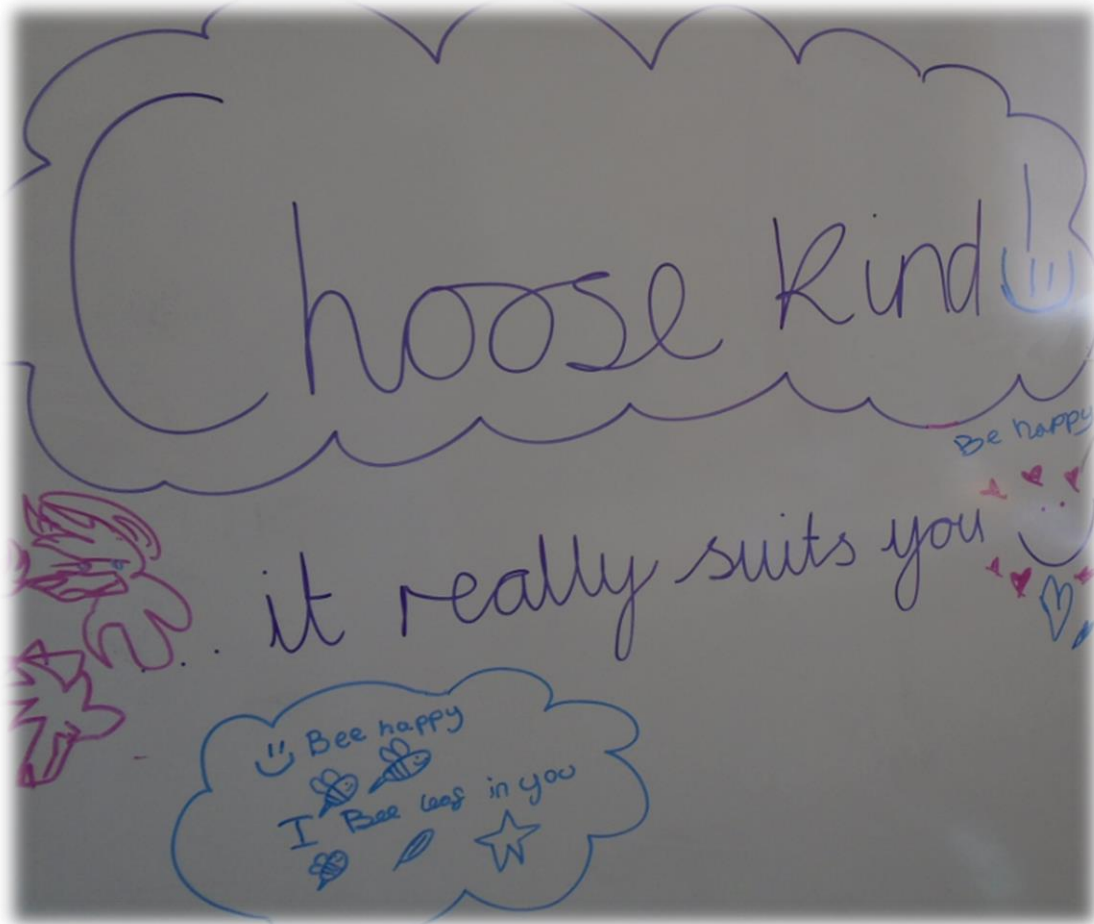 Choose kind!
Be happy
... it really suits you
Bee happy
I Bee leaf in you